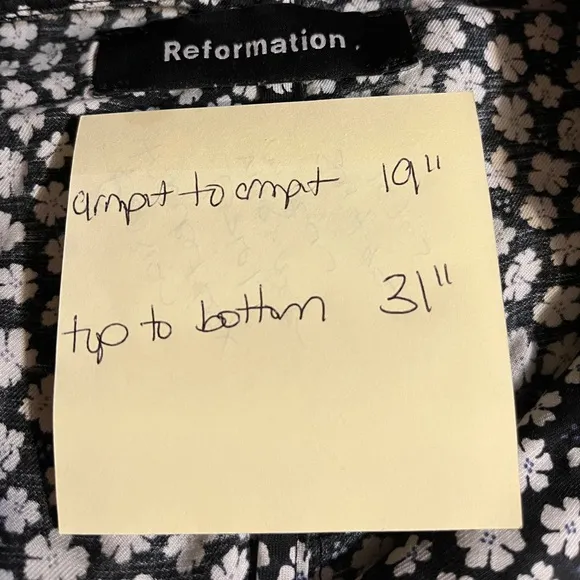 Reformation
armpit to armpit 19"
top to bottom 31"